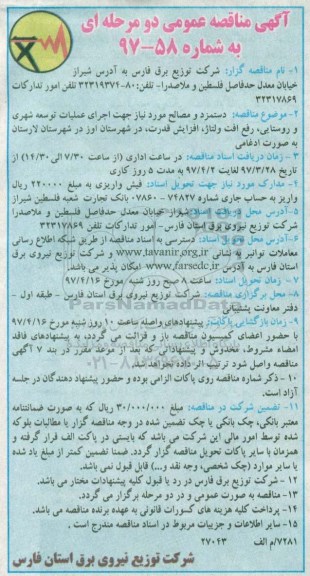 آگهی مناقصه عمومی دو مرحله ای
به شماره ۵۸-۹۷
۱- نام مناقصه گزار: شرکت توزیع برق فارس به آدرس شیراز
خیابان معدل حدفاصل فلسطین و ملاصدرا- تلفن: ۸۰-۳۲۳۱۹۳۷۲ تلفن امور تدارکات
۳۲۳۱۷۸۶۹
۲- موضوع مناقصه: دستمزد و مصالح مورد نیاز جهت اجرای عملیات توسعه شهری
و روستایی، رفع افت ولتاژ، افزایش قدرت، در شهرستان اوز در شهرستان لارستان
به صورت ادغامی
۳- زمان دریافت اسناد مناقصه: در ساعت اداری (از ساعت ۷/۳۰ الی ۱۴/۳۰) از
تاریخ ۹۷/۳/۲۸ لغایت ۹۷/۴/۲ به مدت ۵ روز کاری
۴- مدارک مورد نیاز جهت تحویل اسناد: فیش واریزی به مبلغ ۲۲۰۰۰۰ ریال
واریز به حساب جاری شماره ۷۴۸۲۷-۰۷۸۶۰ بانک تجارت شعبه فلسطین شیراز
۵- آدرس محل دریافت اسناد: شیراز خیابان معدل حدفاصل فلسطین و ملاصدرا
شرکت توزیع نیروی برق استان فارس- امور تدارکات تلفن ۳۲۳۱۷۸۶۹
۶- آدرس محل تحویل اسناد: دسترسی به اسناد مناقصه از طریق شبکه اطلاع رسانی
معاملات توانیر به نشانی www.tavanir.org.ir و شرکت توزیع نیروی برق
استان فارس به آدرس www.farsedc.ir امکان پذیر می باشد.
۷- زمان تحویل اسناد: ساعت ۸ صبح روز شنبه مورخ ۹۷/۴/۱۶
۸- محل برگزاری مناقصه: شرکت توزیع نیروی برق استان فارس - طبقه اول -
دفتر معاونت پشتیبانی
۹- زمان بازگشایی پاکات: پیشنهادهای واصله ساعت ۱۰ روز شنبه مورخ ۹۷/۴/۱۶
با حضور اعضای کمیسیون مناقصه باز و قرائت می گردد، به پیشنهادهای فاقد
امضاء مشروط، مخدوش و پیشنهاداتی که بعد از موعد مقرر در بند ۷ آگهی
مناقصه واصل شود ترتیب اثر داده نخواهد شد.
۱۰- ذکر شماره مناقصه روی پاکات الزامی بوده و حضور پیشنهاد دهندگان در جلسه
آزاد است.
۱۱- تضمین شرکت در مناقصه: مبلغ ۳۰/۰۰۰/۰۰۰ ریال که به صورت ضمانتنامه
معتبر بانکی، چک بانکی یا چک تضمین شده در وجه مناقصه گزار یا مطالبات بلوکه
شده توسط امور مالی این شرکت می باشد که بایستی در پاکت الف قرار گرفته و
همزمان با سایر پاکات تحویل مناقصه گزار گردد. ضمنا تضمین کمتر از مبلغ یاد شده
یا سایر موارد (چک شخصی، وجه نقد و...) قابل قبول نمی باشد.
۱۲- شرکت توزیع برق فارس در رد یا قبول کلیه پیشنهادات مختار می باشد.
۱۳- مناقصه به صورت عمومی و در دو مرحله برگزار می گردد.
۱۴- پرداخت کلیه هزینه های کسورات قانونی به عهده برنده مناقصه می باشد.
۱۵- سایر اطلاعات و جزییات مربوط در اسناد مناقصه مندرج است.
۷۲۸۱/م الف ۲۷۰۴۳
شرکت توزیع نیروی برق استان فارس